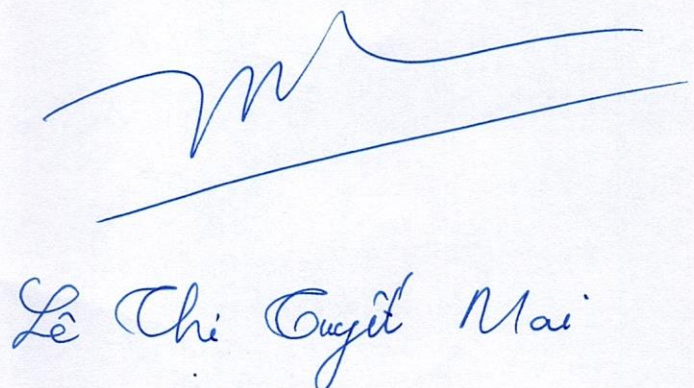 Lê Thị Tuyết Mai